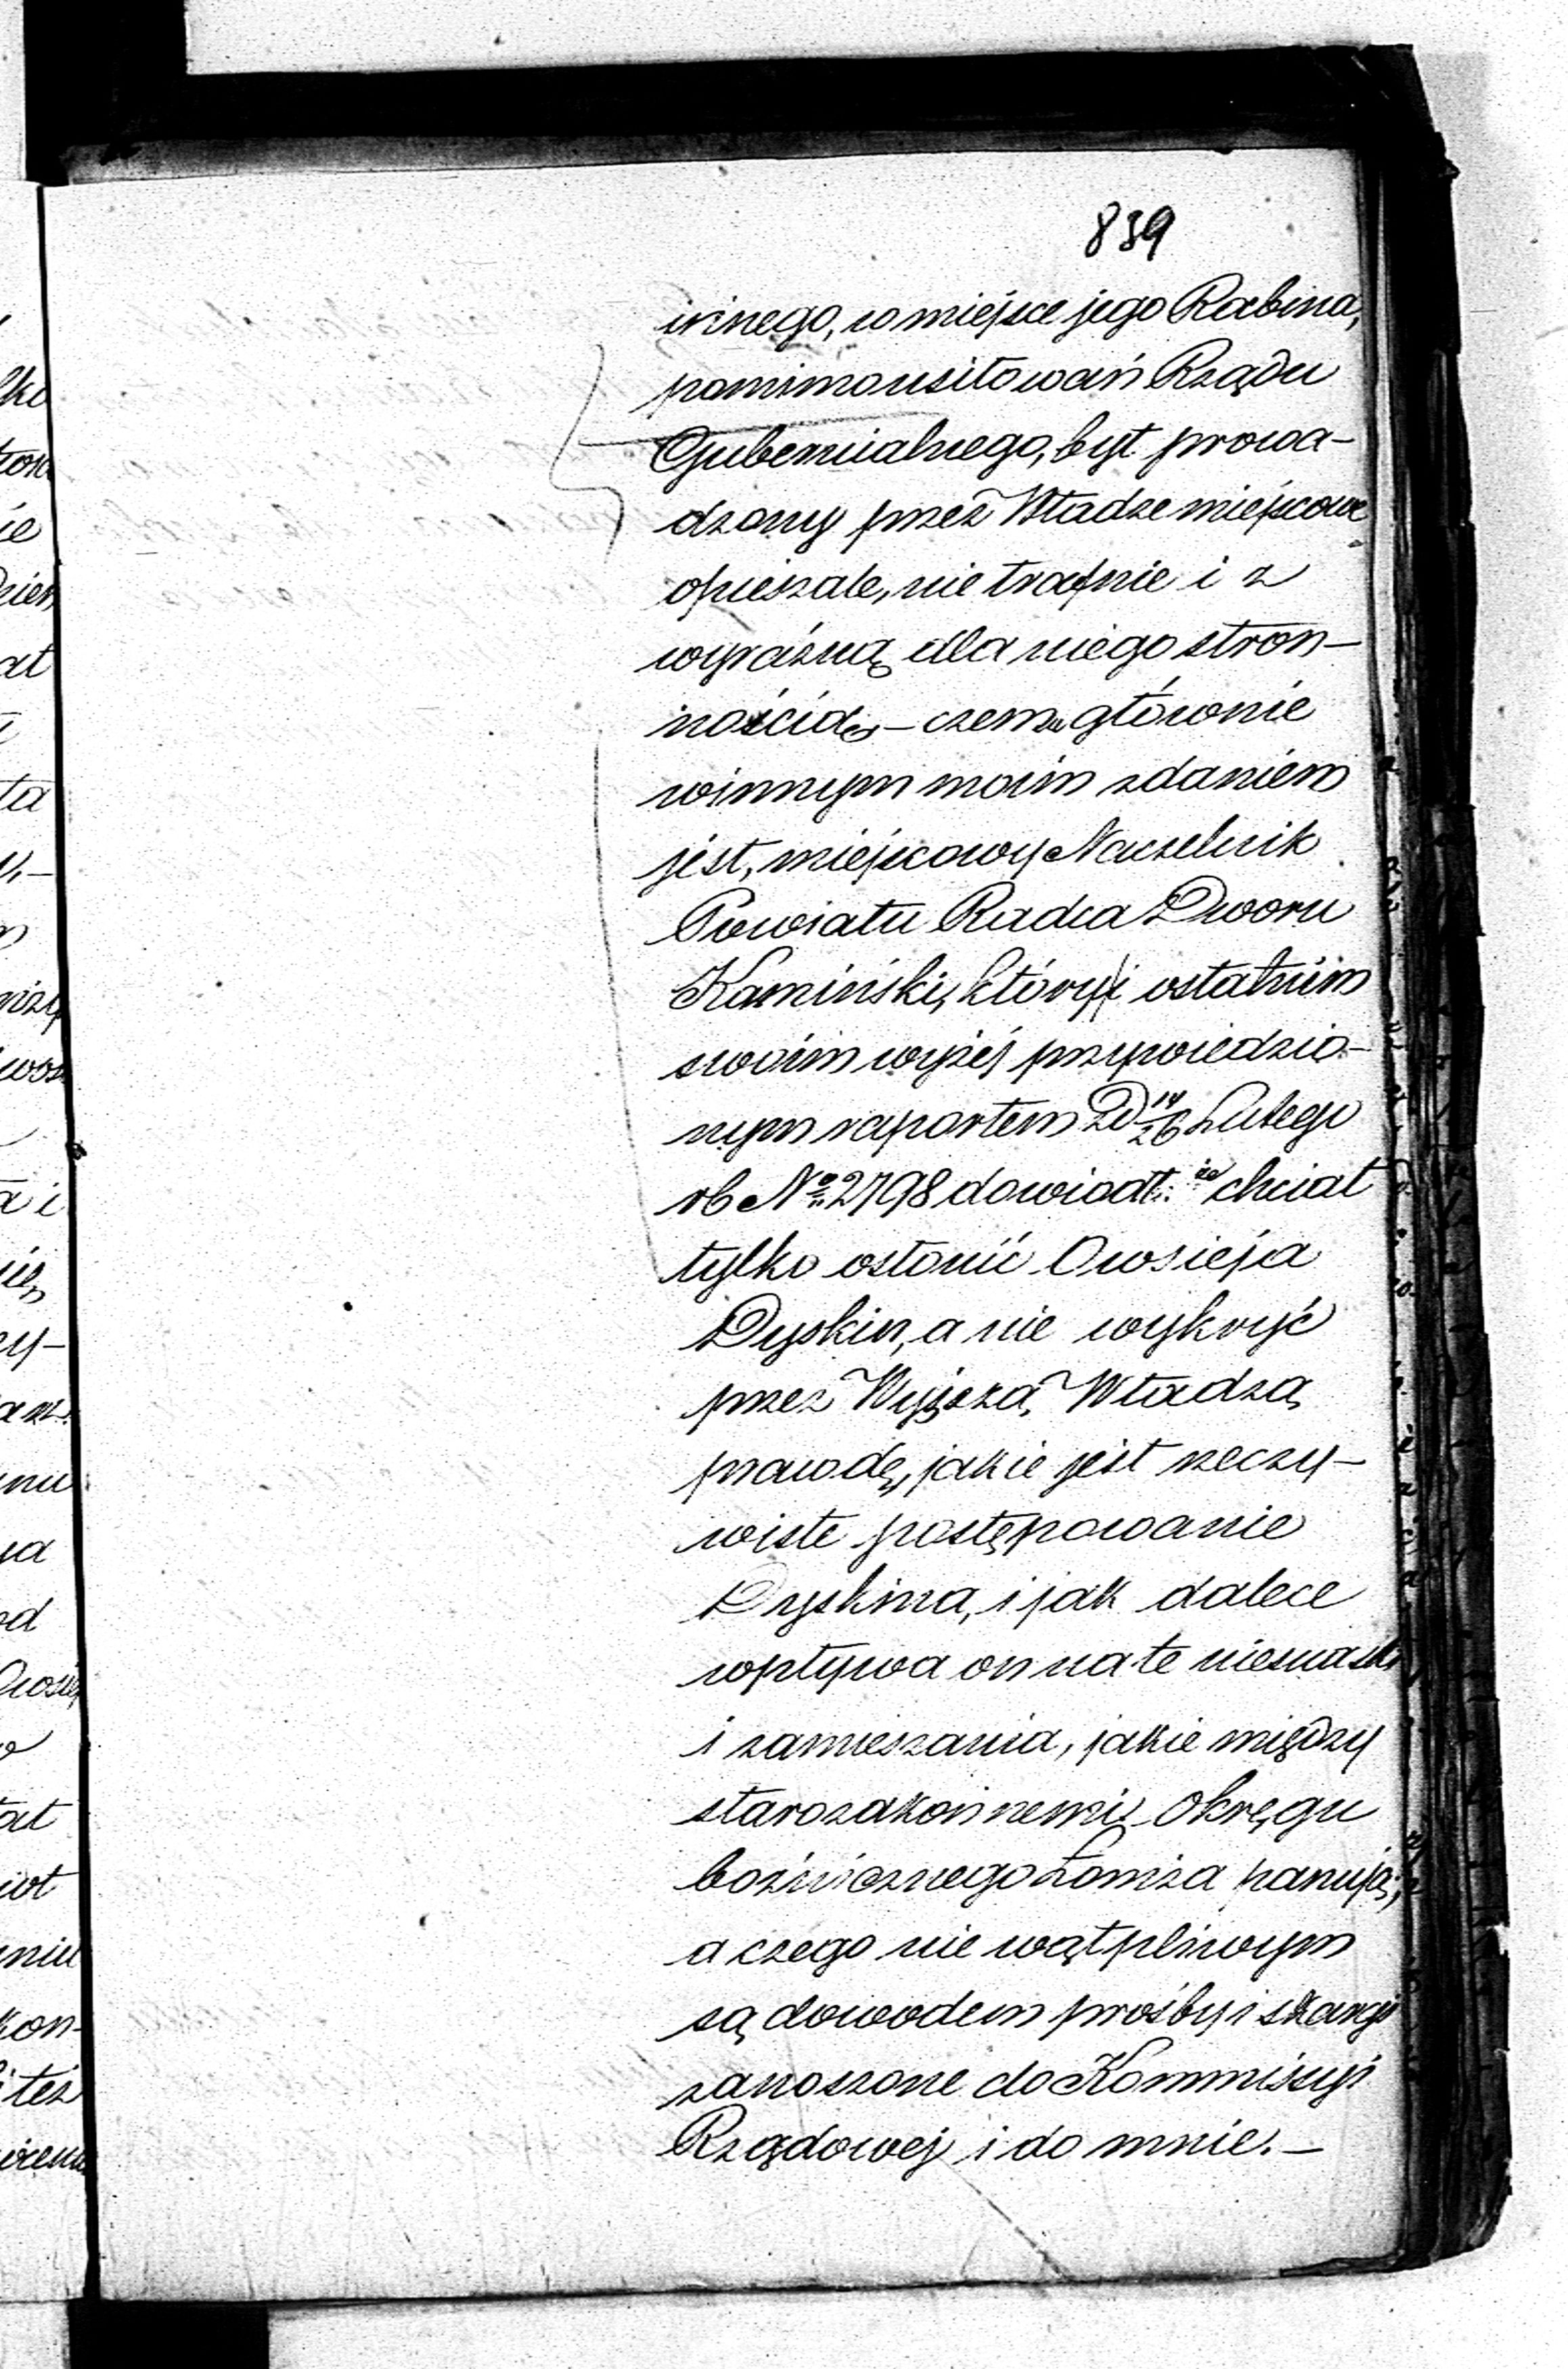 839
innego, w miejsce jego Rabina,
pomimo usiłowań Rządu
Gubernialnego, był prowa-
dzony przez Władze miejscowe
opieszale, nie trafnie i z
wyraźną dla niego stron-
nością, – czemu głównie
winnym moim zdaniem
jest, miejscowy Naczelnik
Powiatu Radca Dworu
Kamiński, który i ostatnim
swoim wyżej przywiedzio-
nym raportem D 14/26 Lutego
rb No 2798 dowiódł: że chciał
tylko osłonić Owsieja
Dyskin, a nie wykryć
przez Wyższą Władzą
prawdę, jakie jest rzeczy-
wiste postępowanie
Dyskina, i jak dalece
wpływa on na te niesnaski
i zamieszania, jakie między
starozakonnemi Okręgu
bożnicznego Łomża panują,
a czego nie wątpliwym
są dowodem prośby i skargi
zanoszone do Kommissyi
Rządowej i do mnie. –